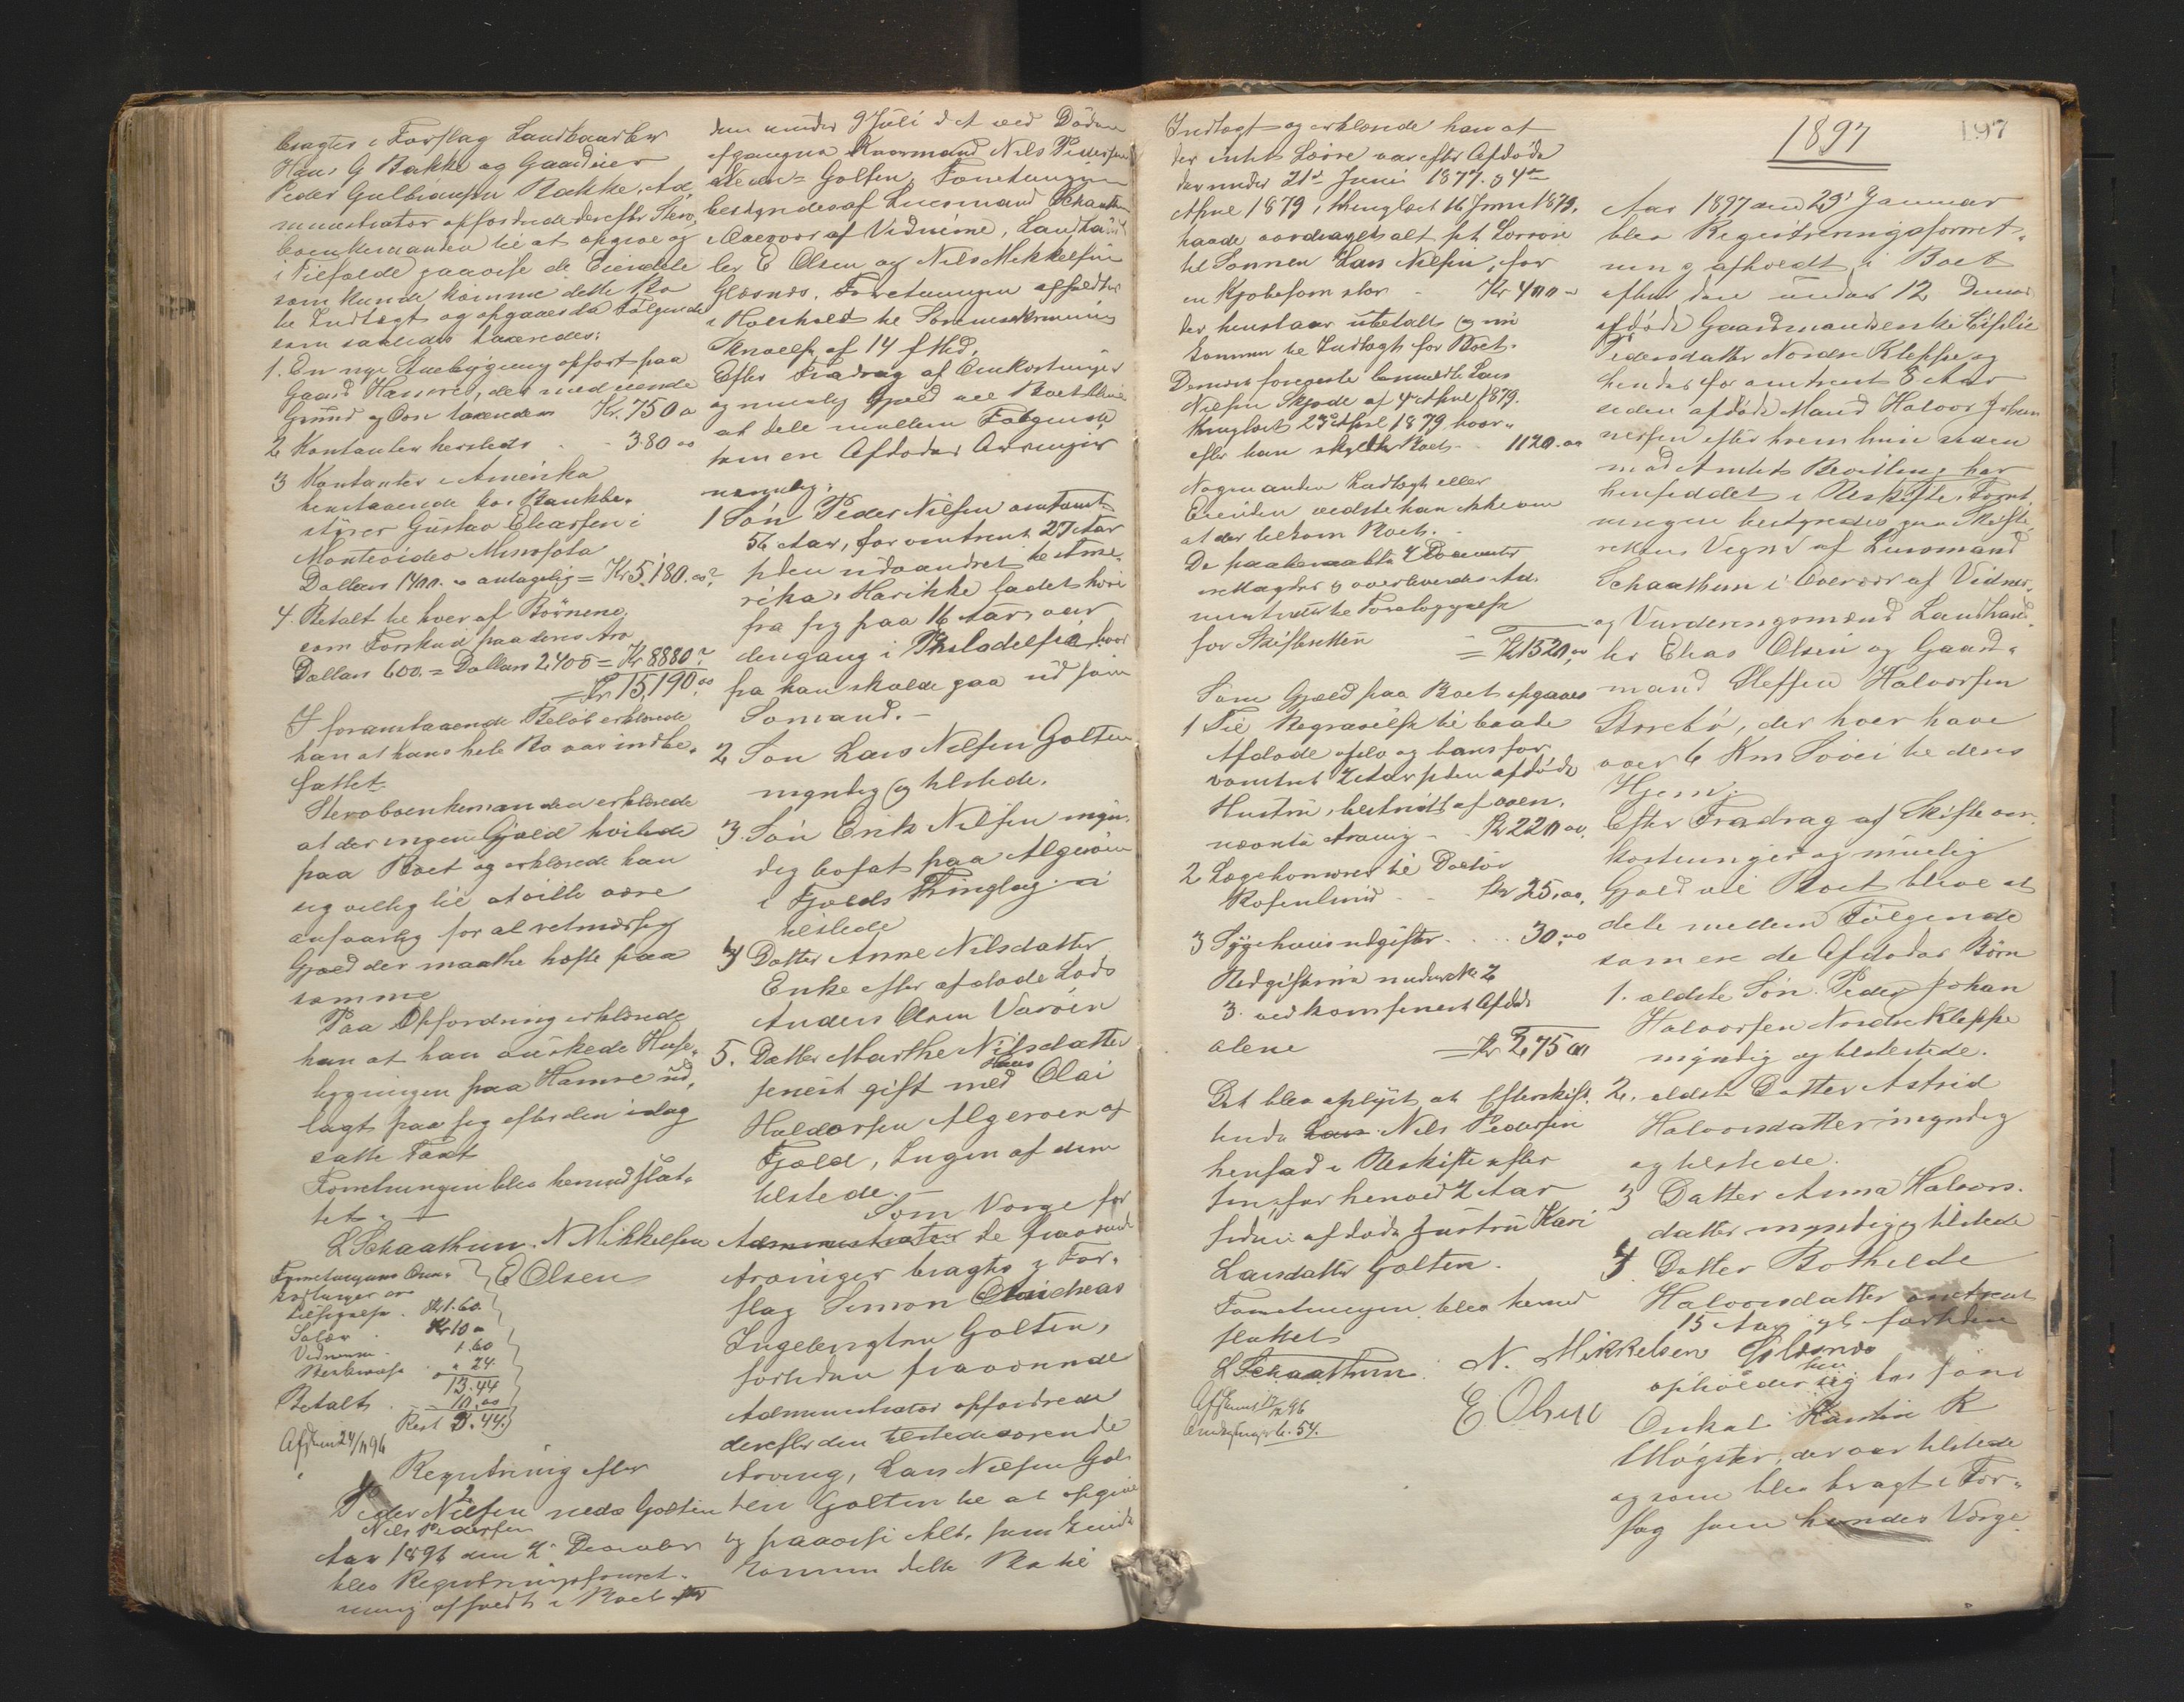 bragtes i Forslag Landhandler
Hans G Bakke og Gaardbruger
Peder Gulbransen Bakke. Ad,
ministrator opfordrede derefter Stervs,
boenkemanden til at opgive og
i Tilfælde paavise de Eiendele
som kunde komme dette Bo
til Indtægt og opgaves da Følgende
som saaledes taxeredes:
1. En nye Stuebygning opført paa
Gaard Hamre, den medværende
Grund og Ovn taxeredes Kr. 750 00
2 Kontanter hersteds - - 3.80 00
3 Kontanter i Amerika
henstaaende hos Bankbe-
styrer Gustav Eliassen i
Montevideo Minnesota
Dollars 1400. antagelig = Kr 5.180.00?
4. Betalt til hver af Børnene,
som Forskud paa deres Arv
Dollars 600. = Dollars 2,400 = Kr 8880?
= Kr 15,190 00
I foranstaaende Beløb erklærede
han at hans hele Bo var indbe-
fattet.
Stervboenkemanden erklærede
at der ingen Gjæld hvilede
paa Boet og erklærede han
sig villig til at ville være
ansvarlig for al retmæssig
Gjæld der maatte hæfte paa
samme
Paa Opfordring erklærede
han at han ønskede Huse,
bygningen paa Hamre ud,
lagt paa sig efter den idag
satte Taxt
Forretningen blev hermed slut-
tet.
L Schaathun. N Mikkelsen
E Olsen
Forretningens Om-
kostninger ere
Tilsigelse . Kr 1.60
Salær . Kr 10 "
Vidnerne . 1.60
Renskrivelse . " 24
13.44
Betalt . . 10.00
Rest 3.44.
Afskr. 24/11 96
Registrering efter
Peder Nilsen nedre Golten
Nils Pedersen
Aar 1896 den 2 December
blev Registreringsforret-
ning afholdt i Boet efter
den under 9 Juli d A ved Døden
afgangne Kaarmand Nils Pedersen
Golten. Forretningen
bestyredes af Lensmand Schaathun
i Overvær af Vidnerne, Landhand
ler E Olsen og Nils Mikkelsen
Glesnes. Forretningen afholdtes
af 14 f Md.
Efter Fradrag af Omkostninger
og muelig Gjæld vil Boet blive
at dele mellem Følgende
som ere Afdødes Arvinger
nemlig:
1 Søn Peder Nilsen omtrent
56 Aar, for omtrent 27 Aar
siden udvandret til Ame-
rika. Har ikke ladet høre
fra sig paa 16 Aar, var
dengang i Philadelfia hvor
fra han skulde gaa ud som
Sømand. -
2 Søn Lars Nilsen Golten
myndig og tilstede.
3. Søn Erik Nilsen myn-
dig bosat paa Algerøen
i Fjelds Thinglag ei
tilstede
4 Datter Anne Nilsdatter
Enke efter afdøde Lods
Anders Olsen
5. Datter Marthe Nilsdatter
senest gift med Hans Olai
Haldorsen Algerøen af
Fjeld, Ingen af dem
tilstede. -
Som Verge for
Administrator de fraværende
Arvinger bragtes i For-
slag Simon Andreas
Ingebrigtsen Golten,
Administrator opfordrede
derefter den tilstedeværende
Arving, Lars Nilsen Gol-
ten Golten til at opgive
og paavise Alt, som kunde
komme dette Bo til
Indtægt og erklærede han at
der intet Løsøre var efter Afdøde
der under 21de Juni 1877. og 4de
April 1879, thinglæst 16 Juni 1879.
havde overdraget alt sit Løsøre
til Sønnen Lars Nilsen, for
en Kjøbesum stor - Kr 400 -
der henstaar ubetalt og nu
kommer til Indtægt for Boet.
Dernæst foreviste bemeldte Lars
Nilsen Skjøde af 4de April 1879.
thinglæst 23de April 1879, hvor-
efter han skylder Boet - 1120.00
Nogen anden Indtægt eller
Eiendom vidste han ikke om
at der tilkom Boet. -
De paaberaabte 2 Documenter
modtages og overleveredes Ad-
ministrator til Forelæggelse
for Skifteretten
= Kr 1520,00
Som Gjæld paa Boet opgaves
1 Til Begravelse til baade
Afdøde selv og hans for
omtrent 2 Aar siden afdøde
Hustru, bestridt af oven-
nævnte Arving - Kr 220 00.
2 Lægehonorar til Doctor
Rosenlund - - Kr 25.00.
3 Sygehusudgifter. . . 30.00
Udgifterne under No 2
3. vedkom senest Afdøde
alene
= Kr 275 00
Det blev oplyst at Efterskift-
lende Lars Nils Pedersen
hensad i Uskifte efter
sin, for henved 2 Aar
siden afdøde Hustru Kari
Larsdatter Golten.
Forretningen blev hermed
sluttet
L Schaathun. N. Mikkelsen Glesnes
E. Olsen
Afskrevet 17/12 96
Omkostninger 6.54.
1897
197
Aar 1897 den 29' Januar
blev Registreringsforret-
ning afholdt i Boet
efter den under 12 Dennes
afdøde Gaardmandsenke Cisilie
Pedersdatter Nordre Kleppe og
hendes for omtrent 8 Aar
siden afdøde Mand Halvor Johan
nessen efter hvem hun siden
med Amtets Bevilling har
hensiddet i Uskifte. Forret-
ningen bestyredes paa Skifte,
rettens Vegne af Lensmand
Schaathun i Overvær af Vidner-
og Vurderingsmænd Landhand-
ler Elias Olsen og Gaard-
mand Steffen Halvorsen
Storebø, der hver have
over 6 Km Sövei til deres
Hjem.
Efter Fradrag af Skifteom
kostninger og muelig
Gjæld vil Boet blive at
dele mellem Følgende
som ere de Afdødes Børn
1. ældste Søn Peder Johan
Halvorsen Nordre Kleppe
myndig og tilstede.
2. ældste Datter Astrid
Halvorsdatter myndig
og tilstede.
3 Datter Anna Halvors-
datter myndig og tilstede
4 Datter Bothilde
Halvorsdatter omtrent
15 Aar gl fortiden
opholder hun sig hos sin
Onkel R
Møgster, der var tilstede
og som blev bragt i For-
slag som hendes Verge